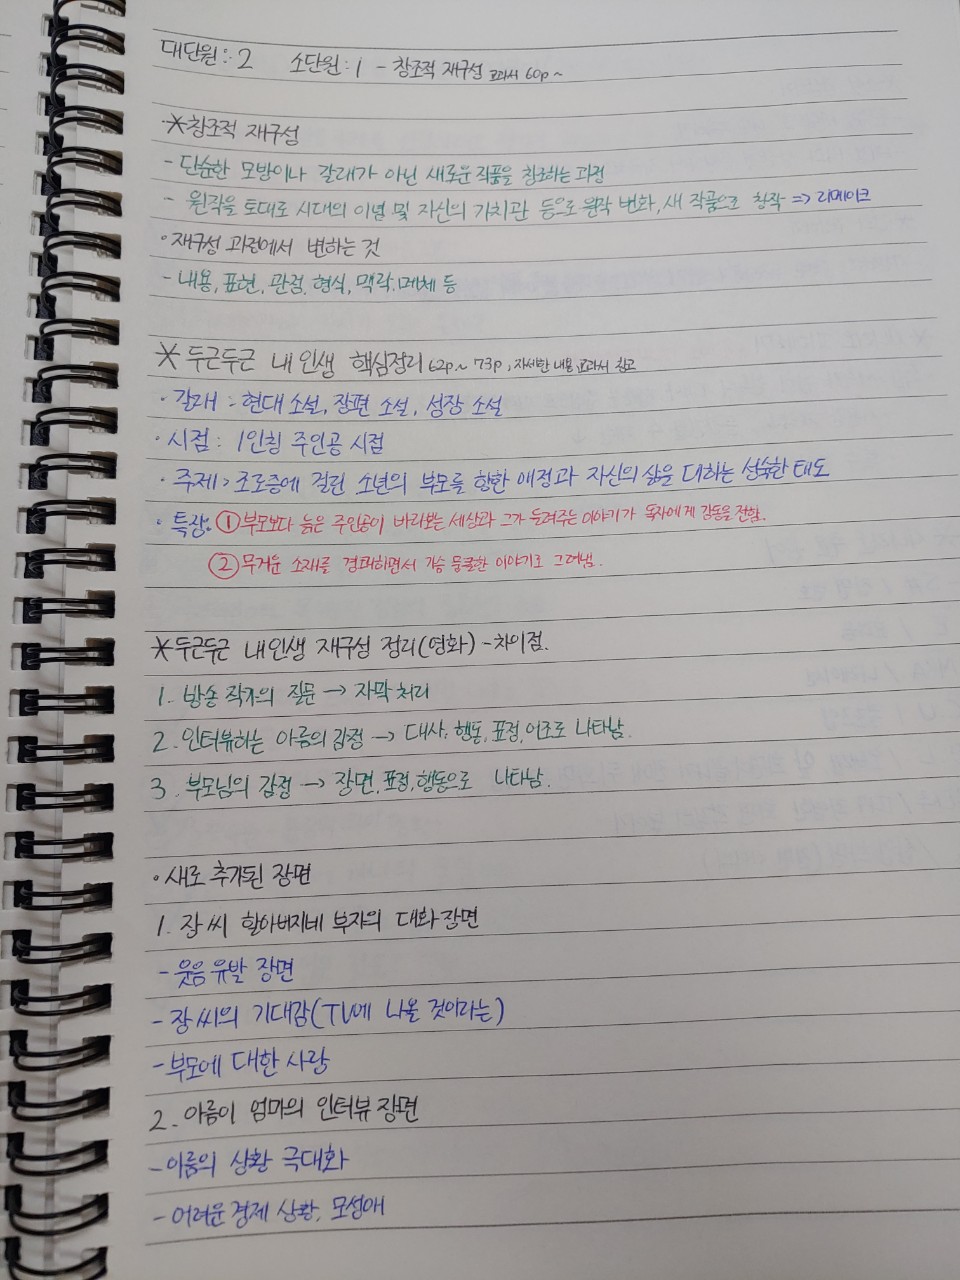 대단원 : 2 소단원 : 1 - 창조적 재구성 교과서 60p~
*창조적 재구성
- 단순한 모방이나 갈래가 아닌 새로운 작품을 창조하는 과정
- 원작을 토대로 시대의 이념 및 자신의 가치관 등으로 원작 변화, 새 작품으로 창작 => 리메이크
· 재구성 과정에서 변하는 것
- 내용, 표현, 관점, 형식, 맥락, 매체 등
* 두근두근 내 인생 핵심정리 62p~ 73p, 자세한 내용 교과서 참고
· 갈래 : 현대 소설, 장편 소설, 성장 소설
· 시점 : 1인칭 주인공 시점
· 주제 : 조로증에 걸린 소년의 부모를 향한 애정과 자신의 삶을 대하는 성숙한 태도
· 특징: ① 부모보다 늙은 주인공이 바라보는 세상과 그가 들려주는 이야기가 독자에게 감동을 전함.
② 무거운 소재를 경쾌하면서 가슴 뭉클한 이야기로 그려냄.
*두근두근 내 인생 재구성 정리(영화) - 차이점.
1. 방송 작가의 질문 → 자막 처리
2. 인터뷰하는 아름의 감정 → 대사, 행동, 표정, 어조로 나타남.
3. 부모님의 감정 → 장면, 표정, 행동으로 나타남.
· 새로 추가된 장면
1. 장 씨 할아버지네 부자의 대화 장면
- 웃음 유발 장면
- 장 씨의 기대감(TV에 나올 것이라는)
- 부모에 대한 사랑
2. 아름이 엄마의 인터뷰 장면
- 아름의 상황 극대화
- 어려운 경제 상황, 모성애